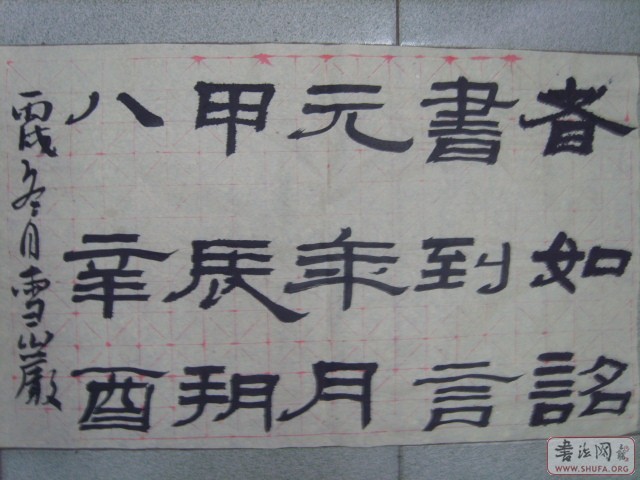 者如詔
書到言
元年月
甲辰朔
八辛酉
丙戌冬月雪巖
書法网
WWW.SHUFA.ORG